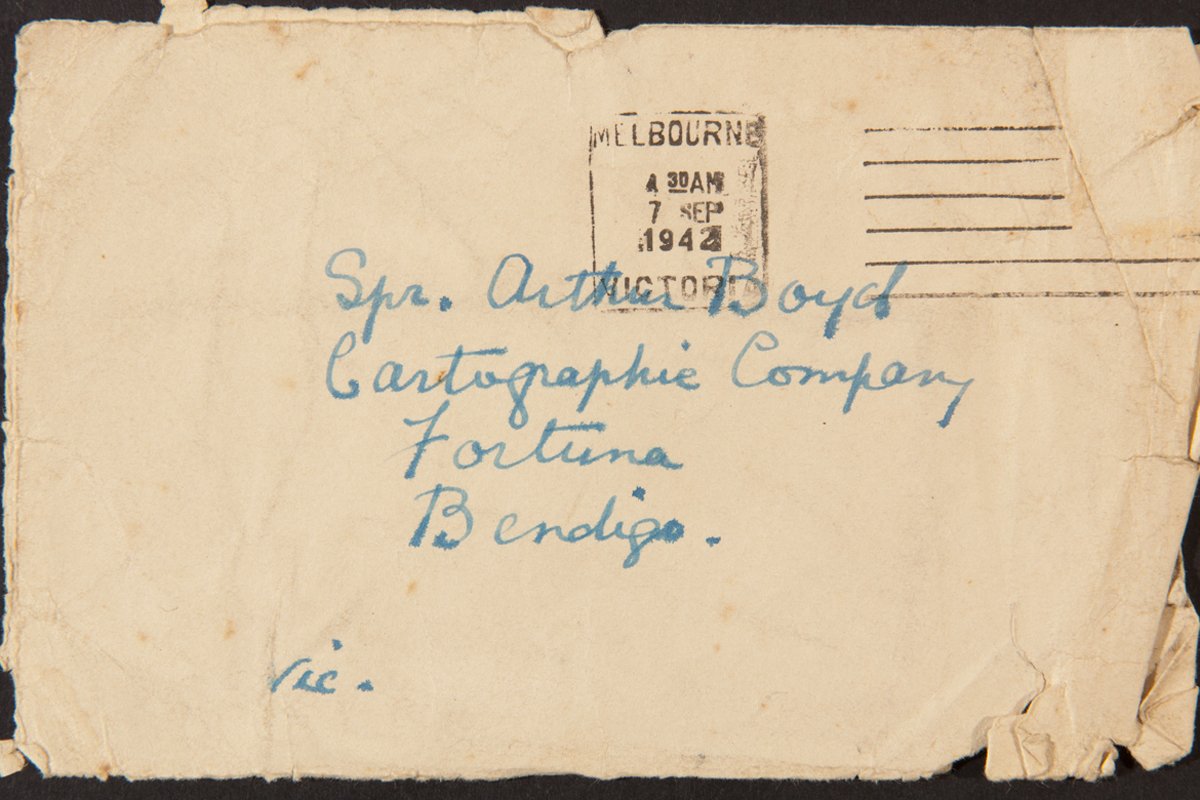 MELBOURNE
4 30AM
7 SEP
1942
VICTORIA
Spr. Arthur Boyd
Cartographic Company
Fortuna
Bendigo.
Vic.